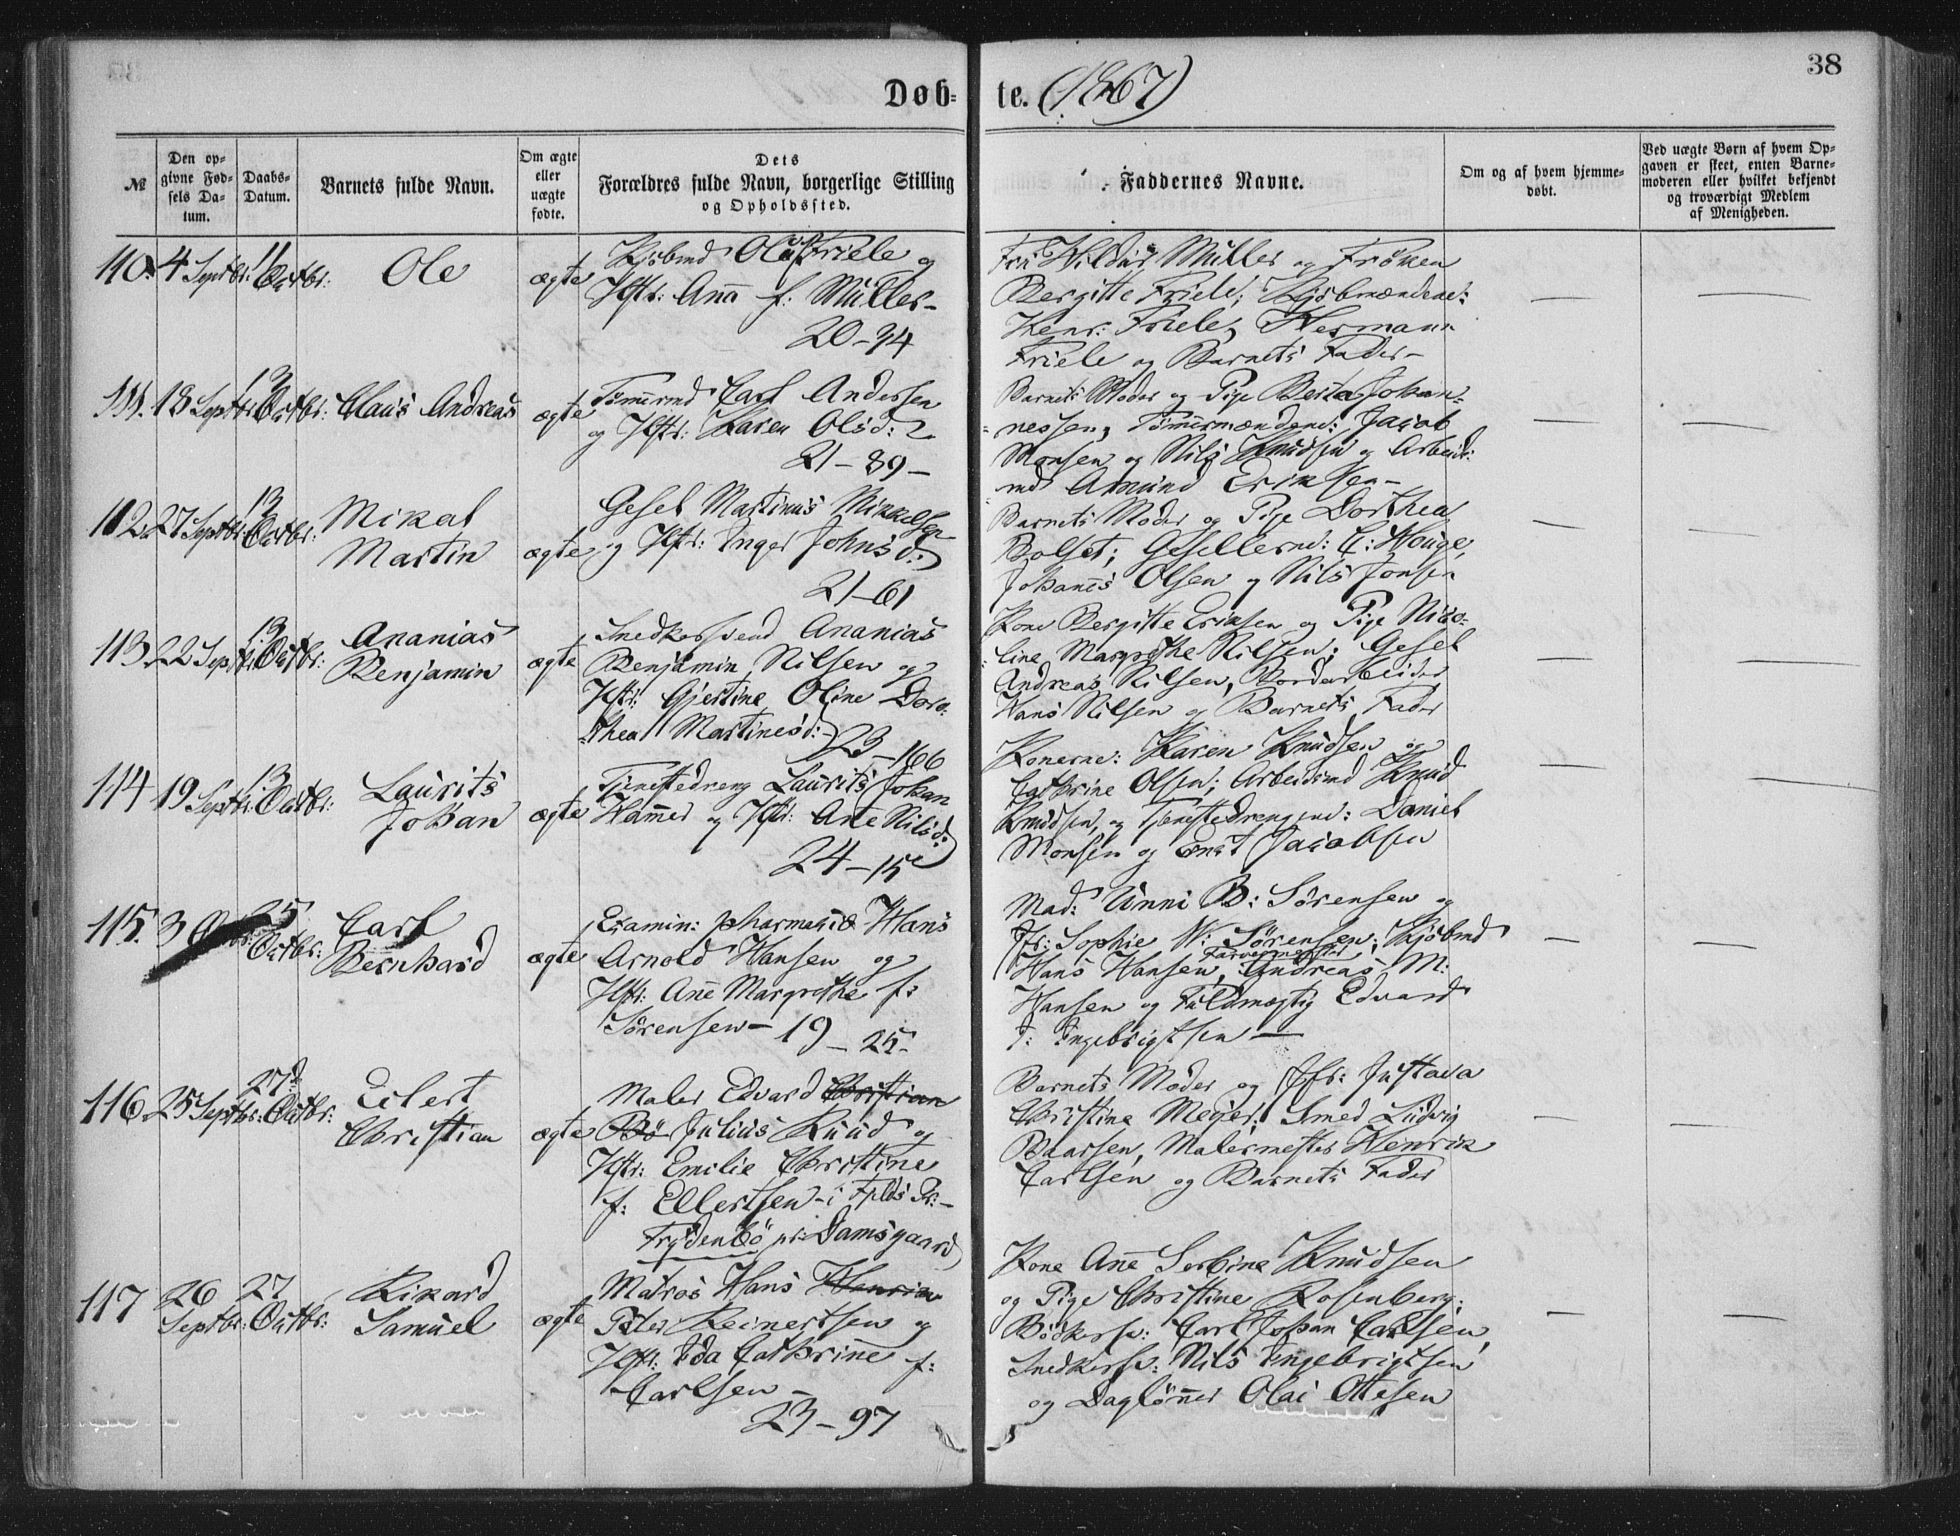 38
Døb- te. (1867)
№
Den op-
givne Fød-
sels Da-
tum.
Daabs-
Datum.
Barnets fulde Navn.
Om ægte
eller
uægte
fødte.
Dets
Forældres fulde Navn, borgerlige Stilling
og Opholdssted.
Faddernes Navne.
Om og af hvem hjemme-
døbt.
Ved uægte Børn af hvem Op-
gaven er skeet, enten Barne-
moderen eller hvilket bekjendt
og troværdigt Medlem
af Menigheden.
110. 4 Septbr: 11 Octbr: Ole ægte
Kjøbmd Ole Friele og
Hstr: Ana f: Müller-
20-34
Müller og Frøken
Bergitte Friele; Kjøbmændene:
Henr: Friele, Hermann
Friele og Barnets Fader-
111. 18 Septbr: 13 Octbr: Claus Andreas ægte
Tømmrmd Carl Andersen
og Hstr: Karen Olsd:
21-89-
Barnets Moder og Pige Berta Johan-
nessen, Tømmermændene: Jacob
Monsen og Nils Knudsen og Arbeids-
md Amund Eriksen-
112. 27 Septbr: 13 Octbr: Mikal
Martin ægte
Gesel Martinus Mikkelsen
og Hstr: Inger Johnsd:
21-61
Barnets Moder og Pige Dorthea
Bolset; Gesellerne: E: Houge,
Johanes Olsen og Nils Jonsen
113. 22 Septbr: 13 Octbr: Ananias
Benjamin ægte
Snedkersvend Ananias
Benjamin Nilsen og
Hstr: Gjertine Oline Doro-
thea Martinesd:
23-166
Kone Bergitte Eriksen og Pige Nico-
line Margrethe Nilsen; Gesel
Andreas Nilsen, Bordarbeider
Hans Nilsen og Barnets Fader
114 19 Septbr: 13 Octbr: Laurits
Johan ægte
Tjenestedreng Laurits Johan
Hamer og Hstr: Ane Nilsd:
24-15
Konerne: Karen Knudsen og
Cathrine Olsen; Arbeidsmd Knud
Knudsen, og Tjenestedrengene: Daniel
Monsen og Jacobsen
115. 3 25 Octbr: Carl
Bernhard ægte
Examin: pharmaciæ Hans
Arnold Hansen og
Hstr: Ane Margrethe f:
Sørensen- 19-25-
Mad: Unni B: Sørensen og
Jfr: Sophie W: Sørensen; Kjøbmd
Hans Hansen, Farvermester Andreas M:
Hansen og Fuldmægtig Edvard
Ingebrigtsen
116 25 Septbr: 27d Octbr: Eilert
Christian ægte
Maler Edvard Christian
Bø Julius Ruud og
Hstr: Emilie Christine
f: Ellertsen - i Fjelds Pr:
Frydenbø pr: Damsgaard
Barnets Moder og Jfr: Justava
Christine Meyer; Smed Ludvig
Baarsen, Malermester Henrik
Carlsen og Barnets Fader
117 26 Septbr: 27 Octbr: Rikard
Samuel ægte
Matros Hans Henrik
Peter Reinertsen og
Hstr: Ida Cathrine f:
Carlsen
23-97
Kone Ane Serbine Knudsen
og Pige Christine Rosenberg;
Bødkersv: Carl Johan Carlsen,
Snedkersv: Nils Ingebrigtsen
og Daglønner Olai Ottesen